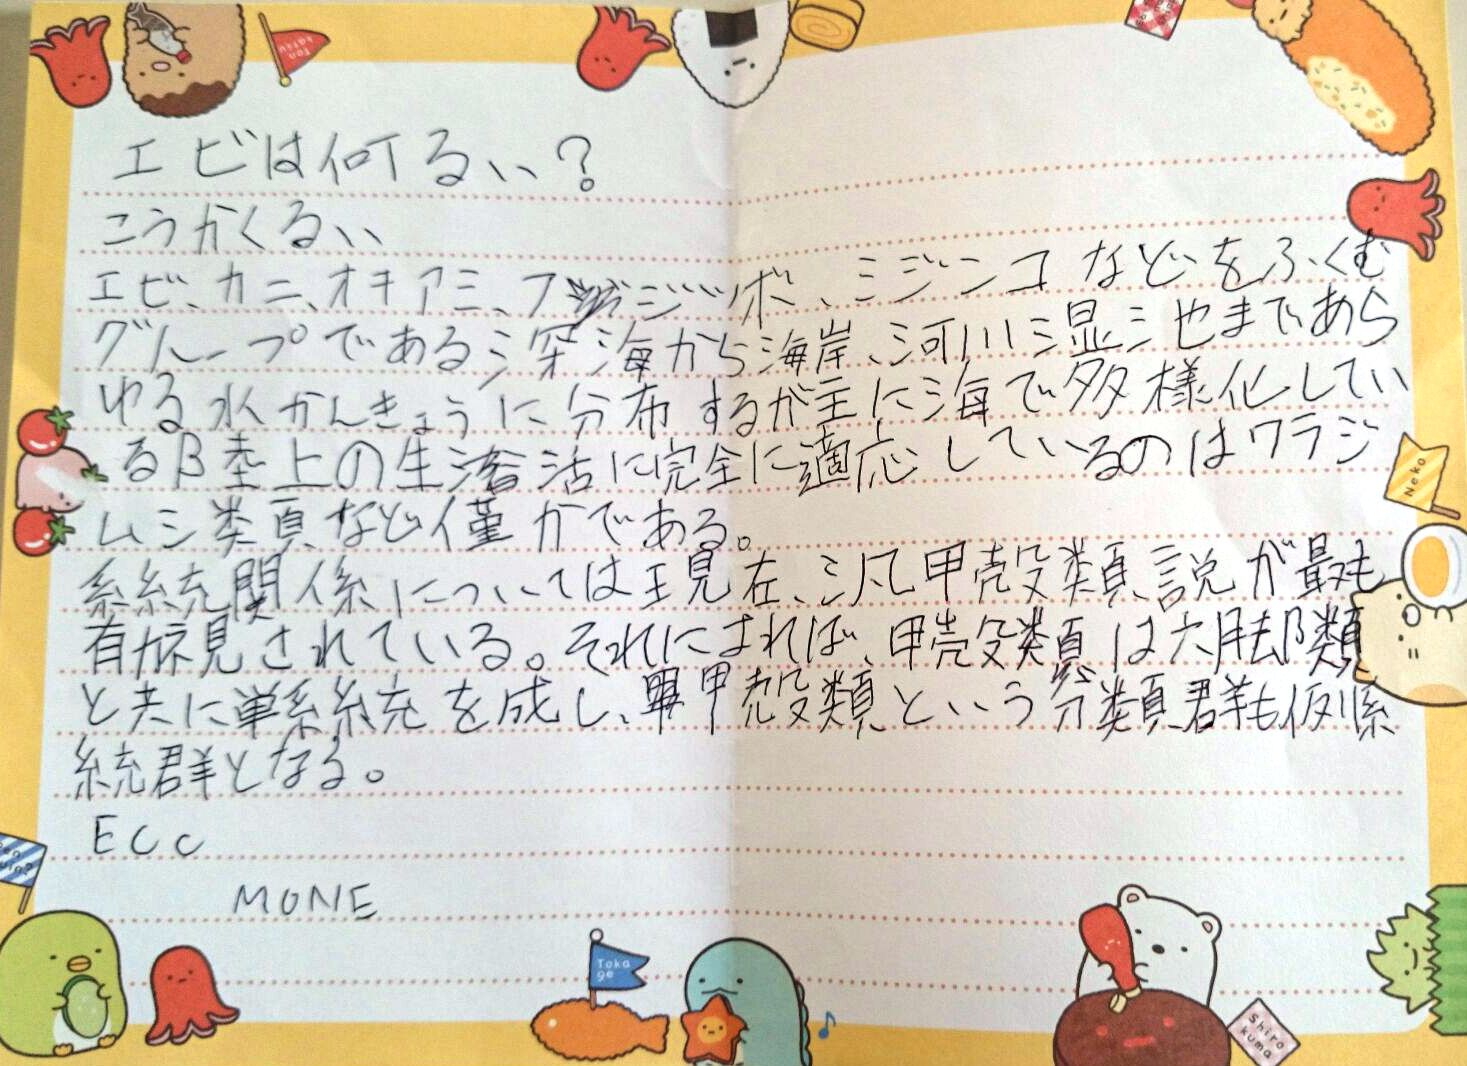 Ton katsu
エビは何るい?
こうかくるい
エビ、カニ、オキアミ、フジツボ、ミジンコなどをふくむ
グループである深海から海岸、河川湿地まであら
ゆる水かんきょうに分布するが主に海で多様化してい
る陸上の生活に完全に適応しているのはワラジ
ムシ類など僅かである。
系統関係については現在、汎甲殻類説が最も
有力視されている。それによれば、甲殻類は六脚類
と共に単系統を成し、単甲殻類という分類群も仮係
統群となる。
ECC
MONE
Neko
Tokage
Shirokuma